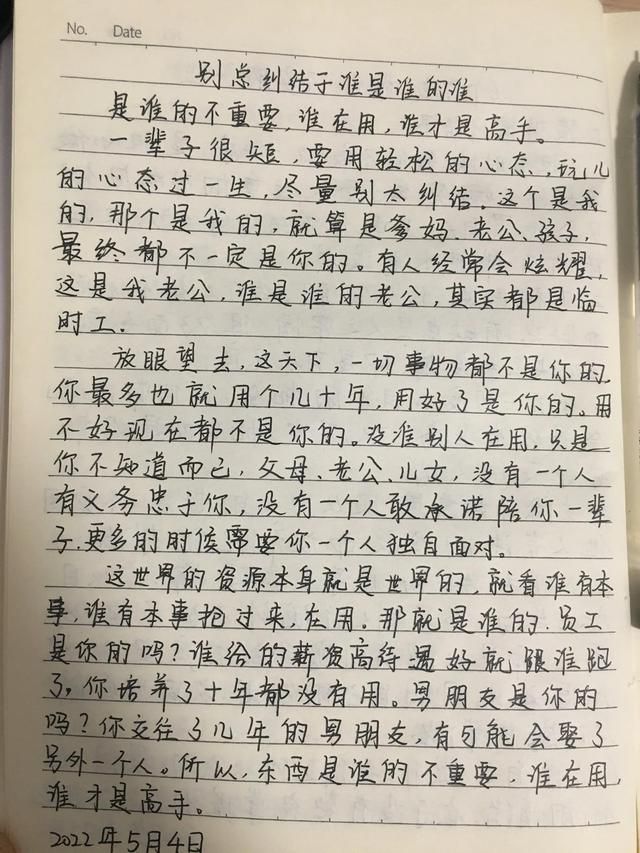 No.    Date
别总纠结于谁是谁的谁
是谁的不重要,谁在用,谁才是高手。
一辈子很短,要用轻松的心态,玩儿
的心态过一生,尽量别太纠结。这个是我
的,那个是我的,就算是爹妈、老公、孩子,
最终都不一定是你的。有人经常会炫耀,
这是我老公,谁是谁的老公,其实都是临
时工.
放眼望去,这天下,一切事物都不是你的,
你最多也就用个几十年,用好了是你的。用
不好现在都不是你的。没准别人在用,只是
你不知道而已,父母、老公、儿女,没有一个人
有义务忠于你,没有一个人敢承诺陪你一辈
子.更多的时候需要你一个人独自面对。
这世界的资源本身就是世界的,就看谁有本
事,谁有本事抢过来,在用。那就是谁的.员工
是你的吗?谁给的薪资高待遇好就跟谁跑
了。你培养了十年都没有用。男朋友是你的
吗?你交往了几年的男朋友,有可能会娶了
另外一个人。所以,东西是谁的不重要,谁在用,
谁才是高手。
2022年5月4日